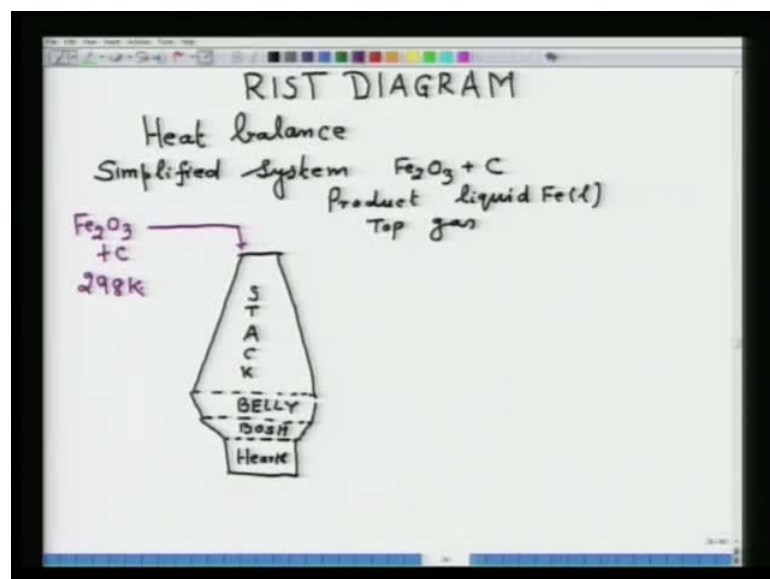 RIST DIAGRAM
Heat balance
Simplified system Fe2O3 + C
Product liquid Fe(l)
Top gas
Fe2O3
+C
298K
S
T
A
C
K
BELLY
BOSH
Hearth